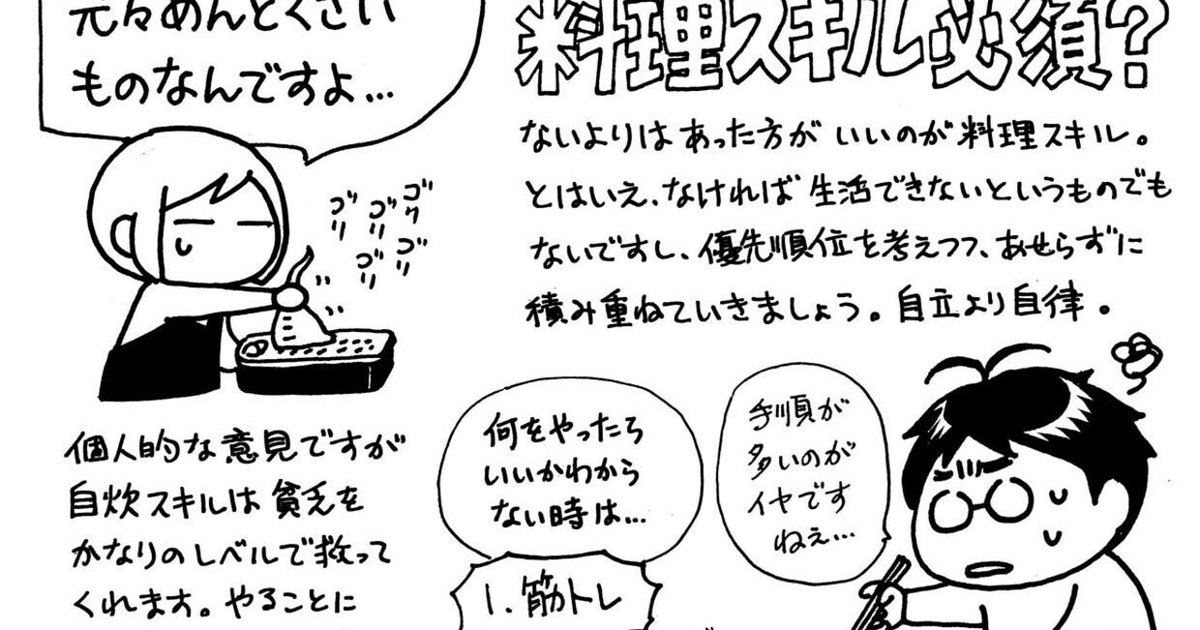 元々めんどくさい
ものなんですよ…
料理スキル必須?
ないよりは あった方が いいのが 料理スキル。
とはいえ、なければ 生活できないというものでも
ないですし、優先順位を考えつつ、あせらずに
積み重ねていきましょう。自立より自律。
ゴリ
ゴリ
ゴク
ゴリ
ゴリ
個人的な意見ですが
自炊スキルは 貧乏を
かなりのレベルで救って
くれます。やることに
何をやったら
いいかわから
ない時は…
1.筋トレ
手順が
多いのが
イヤです
ねぇ…